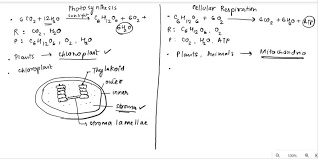 Photosynthesis
• 6CO₂ + 12H₂O sunlight → C₆H₁₂O₆ + 6O₂ + 6H₂O
R: CO₂, H₂O
P: C₆H₁₂O₆, O₂, H₂O
• Plants → Chloroplast ✓
• Chloroplast
Thylakoid
outer
inner
stroma ✓
stroma lamellae
Cellular Respiration
• C₆H₁₂O₆ + 6O₂ → 6CO₂ + 6H₂O + ATP
R: C₆H₁₂O₆, O₂
P: CO₂, H₂O, ATP
• Plants, Animals → Mitochondria
100%